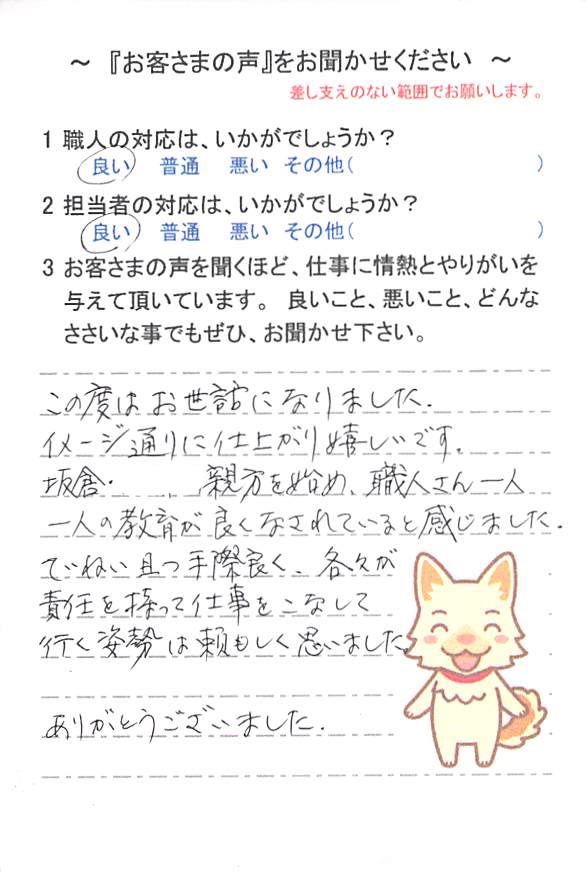 ～ 『お客さまの声』をお聞かせください ～
差し支えのない範囲でお願いします。
1 職人の対応は、いかがでしょうか？
良い 普通 悪い その他( )
2 担当者の対応は、いかがでしょうか？
良い 普通 悪い その他( )
3 お客さまの声を聞くほど、仕事に情熱とやりがいを
与えて頂いています。 良いこと、悪いこと、どんな
ささいな事でもぜひ、お聞かせ下さい。
この度はお世話になりました.
イメージ通りに仕上がり嬉しいです。
坂倉・ . 親方を始め、職人さん一人
一人の教育が良くなされていると感じました.
ていねい且つ手際良く、各々が
責任を持って仕事をこなして
行く姿勢は頼もしく思いました。
ありがとうございました.